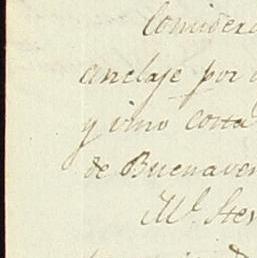 Considera
anclaje por
y vino corta
de Buenaven
Mr. Ste